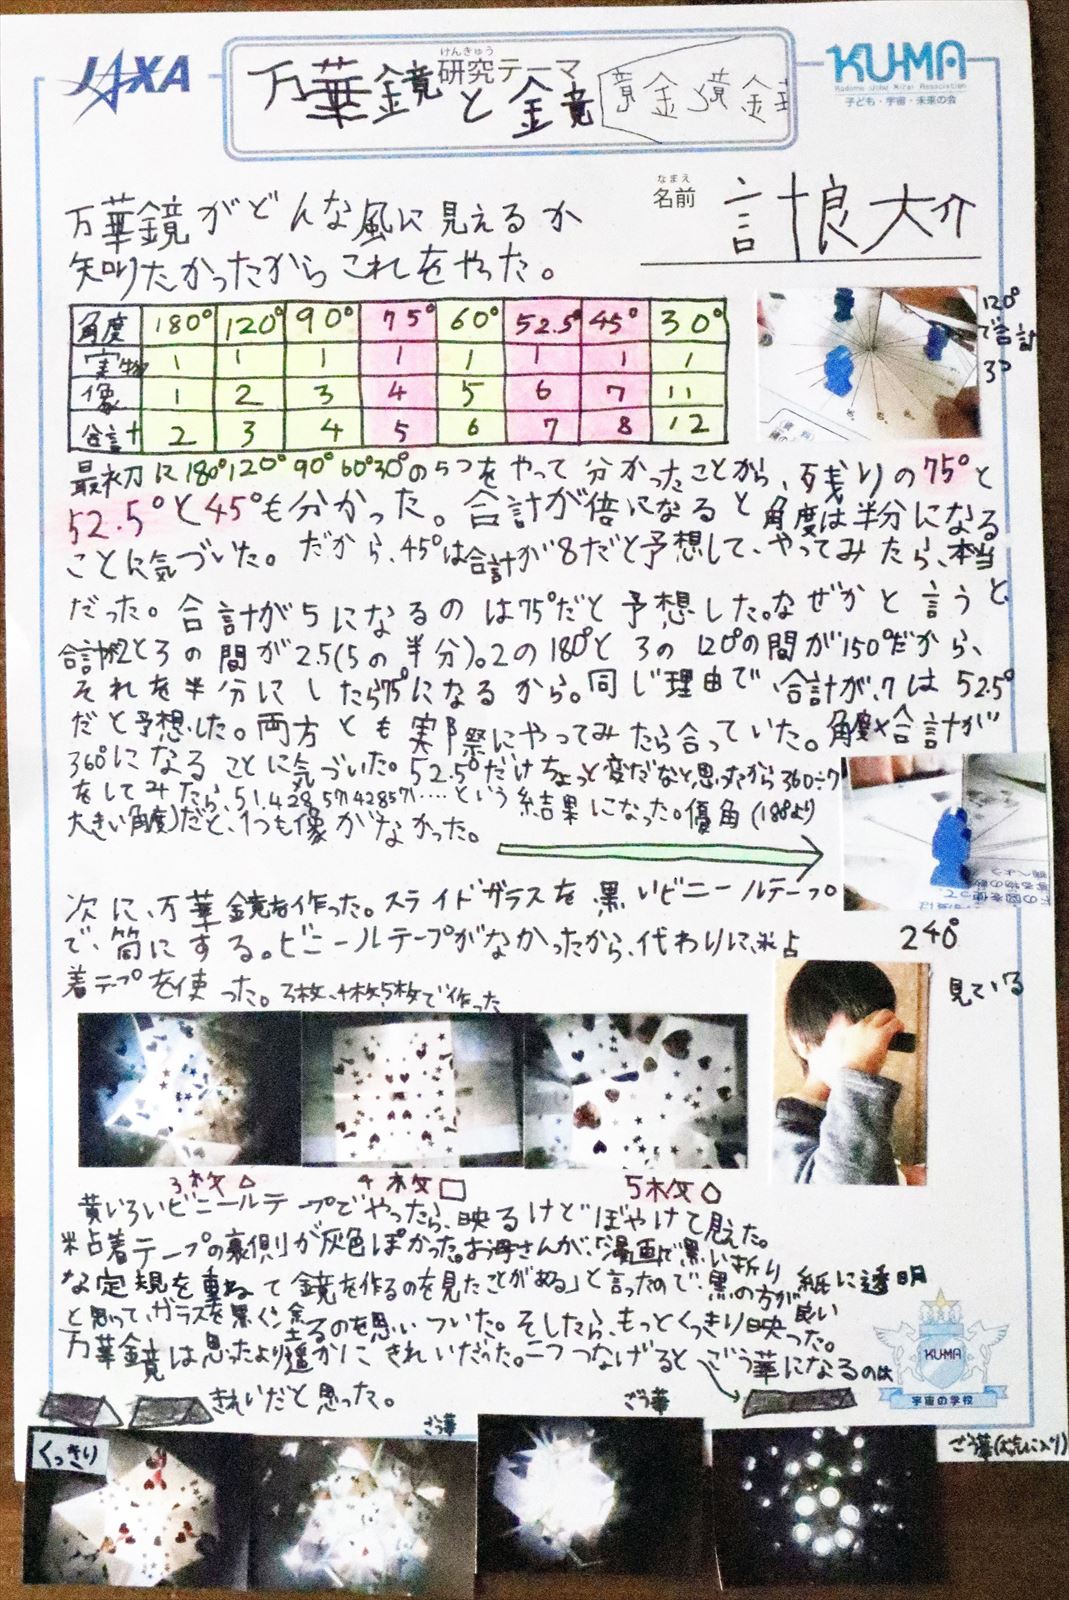 JAXA
けんきゅう
研究テーマ
万華鏡と鏡
KU-MA
Kodomo Uchu Mirai Association
子ども・宇宙・未来の会
なまえ
名前
大介
万華鏡がどんな風に見えるか
知りたかったからこれをやった。
角度 180° 120° 90° 75° 60° 52.5° 45° 30°
実物 1 1 1 1 1 1 1 1
像 1 2 3 4 5 6 7 11
合計 2 3 4 5 6 7 8 12
120°
で合計
3つ
最初に180°120°90°60°30°の5つをやって分かったことから、残りの75°と
52.5°と45°も分かった。合計が倍になると角度は半分になる
ことに気づいた。だから、45°は合計が8だと予想して、やってみたら、本当
だった。合計が5になるのは75°だと予想した。なぜかと言うと
合計が2と3の間が2.5(5の半分)。2の180°と3の120°の間が150°だから、
それを半分にしたら75°になるから。同じ理由で、合計が、7は52.5°
だと予想した。両方とも実際にやってみたら合っていた。角度×合計が
360°になることに気づいた。52.5°だけちょっと変だなと思ったから360÷7
をしてみたら、51.428571428571…‥という結果になった。優角(180°より
大きい角度)だと、1つも像がなかった。
240°
次に、万華鏡を作った。スライドガラスを黒いビニールテープ
で、筒にする。ビニールテープがなかったから、代わりに、粘
着テープを使った。3枚、4枚、5枚で作った
見ている
3枚△
4枚□
5枚⬠
黄いろいビニールテープでやったら、映るけどぼやけて見えた。
粘着テープの裏側が灰色ぽかった。お母さんが、「漫画で黒い折り紙に透明
な定規を重ねて鏡を作るのを見たことがある」と言ったので、黒の方が良い
と思って、ガラスを黒く塗るのを思いついた。そしたら、もっとくっきり映った。
万華鏡は思ったより遥かにきれいだった。二つつなげるとごう華になるのは
きれいだと思った。
KU-MA
宇宙の学校
くっきり
ごう華
ごう華